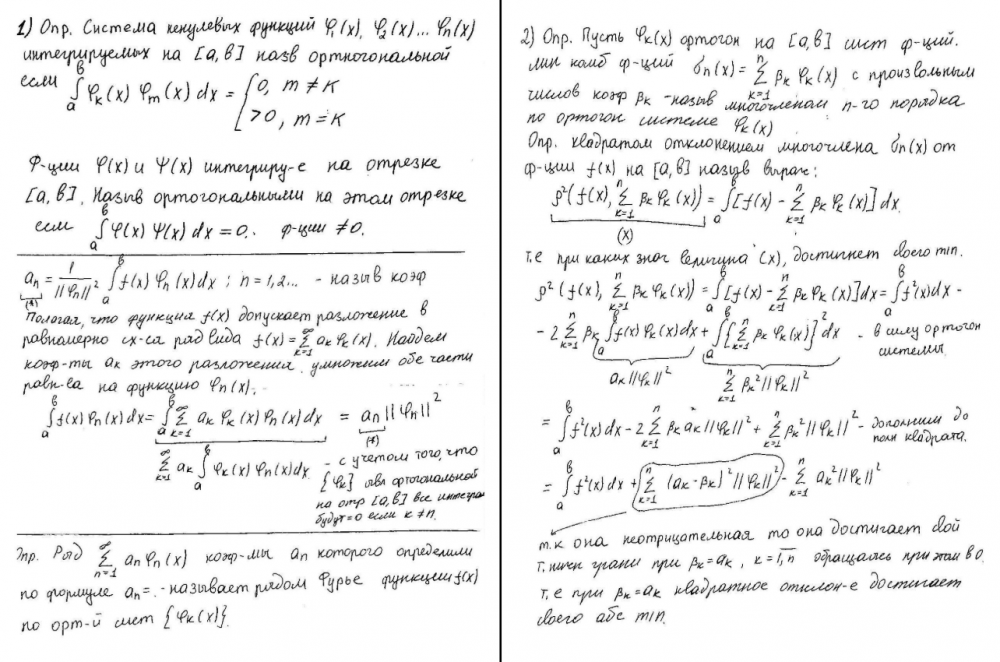 1) Опр. Система ненулевых функций φ₁(x), φ₂(x)... φₙ(x)
интегрируемых на [a,в] назв ортногональной
если ∫ₐᵇ φₖ(x) φₘ(x) dx = {0, m ≠ к
>0, m = к
Ф-ции φ(x) и ψ(x) интегриру-е на отрезке
[a,в]. Назыв ортогональными на этом отрезке
если ∫ₐᵇ φ(x) ψ(x) dx = 0. ф-ции ≠ 0.
aₙ = 1/||φₙ||² ∫ₐᵇ f(x) φₙ(x) dx ; n = 1,2... - назыв коэф
(*)
Пологая, что функция f(x) допускает разложение в
равномерно сх-ся ряд вида f(x) = ∑ₖ₌₁^∞ aₖ φₖ(x). Найдем
коэф-ты aₖ этого разложения, умножим обе части
равн-ва на функцию φₙ(x).
∫ₐᵇ f(x) φₙ(x) dx = ∫ₐᵇ ∑ₖ₌₁^∞ aₖ φₖ(x) φₙ(x) dx = aₙ ||φₙ||²
(*)
∑ₖ₌₁^∞ aₖ ∫ₐᵇ φₖ(x) φₙ(x) dx - с учетом того, что
{φₖ} явл ортогональной
на отр [a,в] все интегра
будут = 0 если к ≠ n.
Опр. Ряд ∑ₙ₌₁^∞ aₙ φₙ(x) коэф-мы aₙ которого определили
по формуле aₙ = . - называет рядом Фурье функции f(x)
по орт-й сист {φₖ(x)}.
2) Опр. Пусть φₖ(x) ортогон на [a,в] сист ф-ций.
лин комб ф-ций σₙ(x) = ∑ₖ₌₁ⁿ βₖ φₖ(x) с произвольным
числов коэф βₖ - назыв многочленам n-го порядка
по ортогон системе φₖ(x)
Опр. квадратом отклонением многочлена σₙ(x) от
ф-ции f(x) на [a,в] назыв выраж:
ρ²(f(x), ∑ₖ₌₁ⁿ βₖ φₖ(x)) = ∫ₐᵇ [f(x) - ∑ₖ₌₁ⁿ βₖ φₖ(x)] dx.
(x)
т.е при каких знач величина (x), достигнет своего min.
ρ²(f(x), ∑ₖ₌₁ⁿ βₖ φₖ(x)) = ∫ₐᵇ [f(x) - ∑ₖ₌₁ⁿ βₖ φₖ(x)] dx = ∫ₐᵇ f²(x) dx -
- 2 ∑ₖ₌₁ⁿ βₖ ∫ₐᵇ f(x) φₖ(x) dx + ∫ₐᵇ [∑ₖ₌₁ⁿ βₖ φₖ(x)]² dx - в силу ортогон
системы.
aₖ ||φₖ||² ∑ₖ₌₁ⁿ βₖ² ||φₖ||²
= ∫ₐᵇ f²(x) dx - 2 ∑ₖ₌₁ⁿ βₖ aₖ ||φₖ||² + ∑ₖ₌₁ⁿ βₖ² ||φₖ||² - дополним до
полн квадрата.
= ∫ₐᵇ f²(x) dx + ∑ₖ₌₁ⁿ (aₖ - βₖ)² ||φₖ||² - ∑ₖ₌₁ⁿ aₖ² ||φₖ||²
т.к она неотрицательная то она достигает свой
грани при βₖ = aₖ, к = 1,n обращаясь при этом в 0
т.е при βₖ = aₖ квадратное отклон-е достигает
своего абс min.